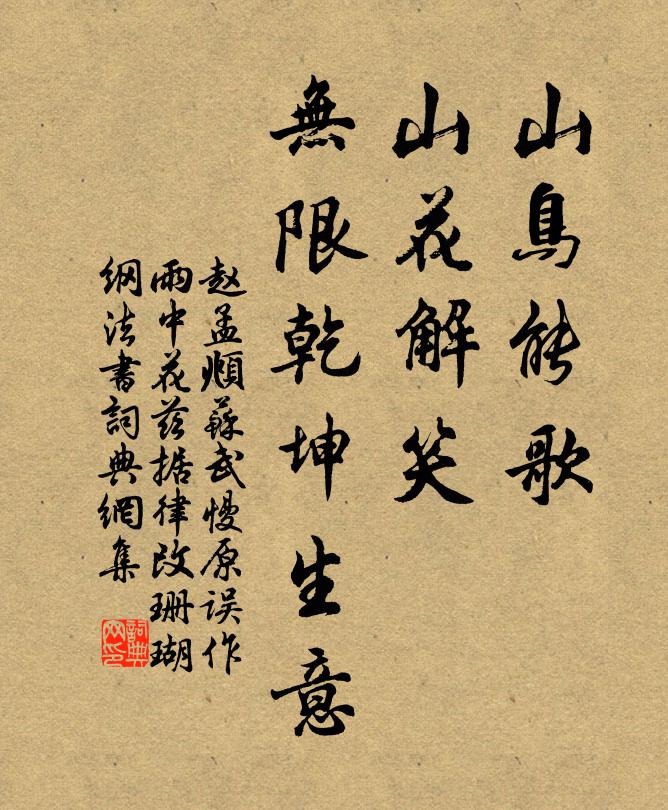 山鳥能歌
山花解笑
無限乾坤生意
赵孟頫蘇武慢原误作
雨中花兹据律改珊瑚
纲法書詞典網集
詞典
网印